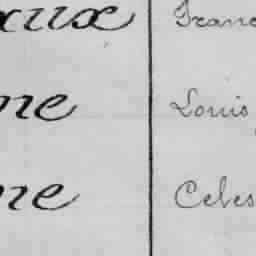 aux Franc
ne Louis
ne Celes